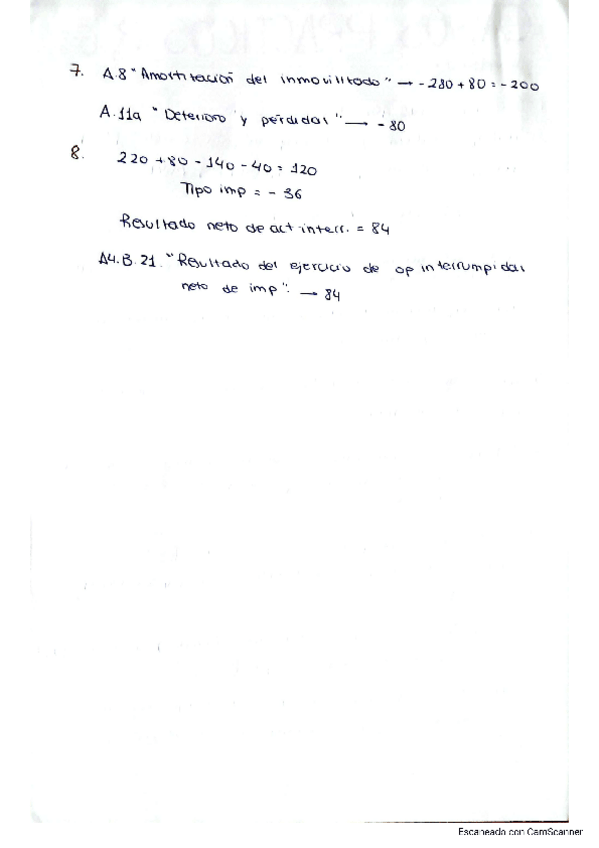 7. A.8 "Amortización del inmovilizado" → - 280 + 80 = - 200
A.11a "Deterioro y pérdidas" → - 80
8. 220 + 80 - 140 - 40 = 120
Tipo imp = - 36
Resultado neto de act interr. = 84
A4.B.21. "Resultado del ejercicio de op interrumpidas
neto de imp". → 84
Escaneado con CamScanner